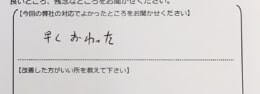 良いところ、残念なところをお聞かせください。
【今回の弊社の対応でよかったところをお聞かせください】
早くおわった
【改善した方がいい所を教えて下さい】